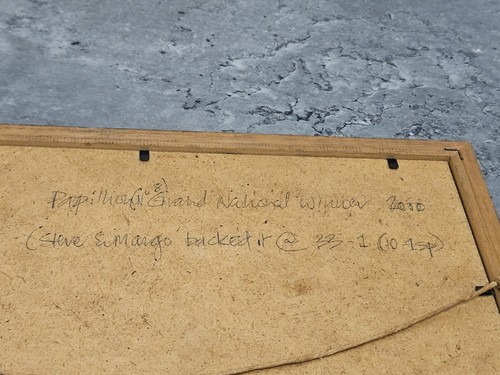 Papillon (N° 8) Grand National Winner 2000
(Steve & Margo backed it @ 33-1 (10-1 sp)